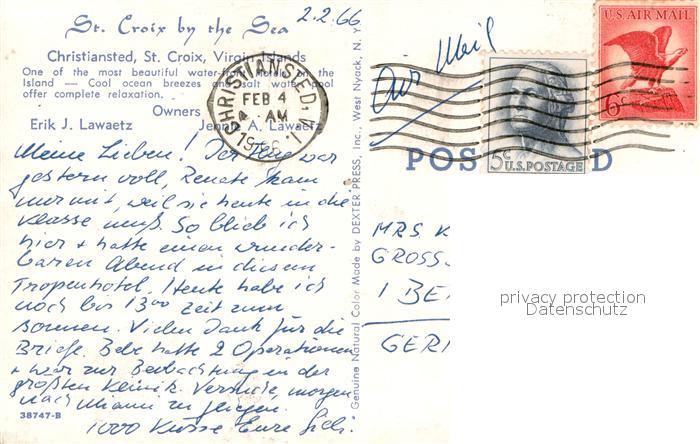 St. Croix by the Sea
2.2.66
Christiansted, St. Croix, Virgin Islands
One of the most beautiful water-front hotels on the
Island — Cool ocean breezes and salt water pool
offer complete relaxation.
Owners
Erik J. Lawaetz Jenny A. Lawaetz
Meine Lieben! Der Flug war
gestern voll, Renate kam
nur mit, weil sie heute in die
Klasse muß. So blieb ich
hier + hatte einen wunder-
baren Abend in diesem
Tropenhotel. Heute habe ich
noch bis 13⁰⁰ Zeit zum
sonnen. Vielen Dank für die
Briefe. Bebe hatte 2 Operationen
+ war zur Beobachtung in der
großen Klinik. Versuche, morgen
nach Miami zu fliegen.
1000 Küsse Eure
38747-B
Genuine Natural Color Made by DEXTER PRESS, Inc., West Nyack, N. Y.
Air Mail
CHRISTIANSTED, V.I.
FEB 4
AM
1966
5c U.S. POSTAGE
U.S. AIR MAIL
6c
POS D
MRS K
GROSS
1 BE
GER
privacy protection
Datenschutz